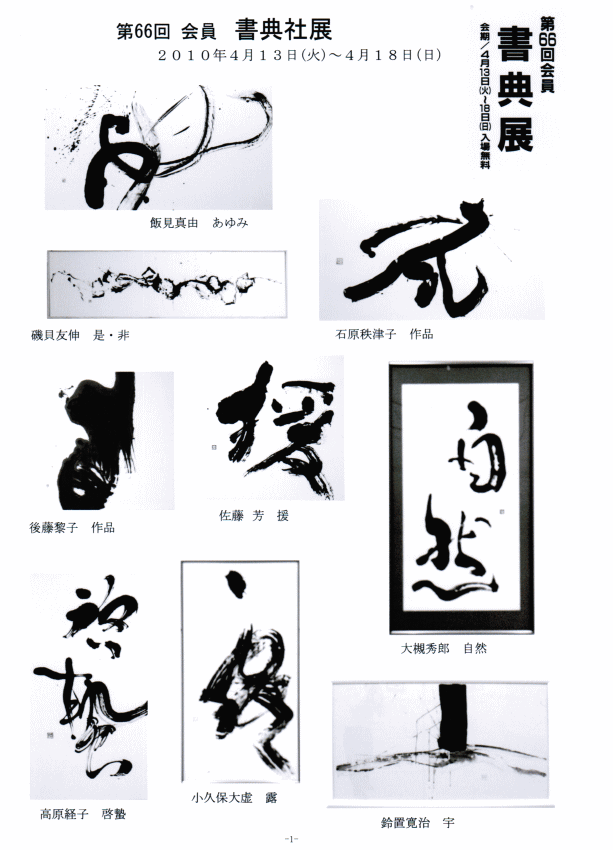 第66回 会員 書典社展
2010年4月13日(火)~4月18日(日)
第66回会員
書典展
会期/4月13日(火)~18日(日)入場無料
飯見真由 あゆみ
磯貝友伸 是・非
石原秩津子 作品
後藤黎子 作品
佐藤 芳 援
援
自然
大槻秀郎 自然
高原経子 啓蟄
小久保大虚 露
鈴置寛治 宇
-1-